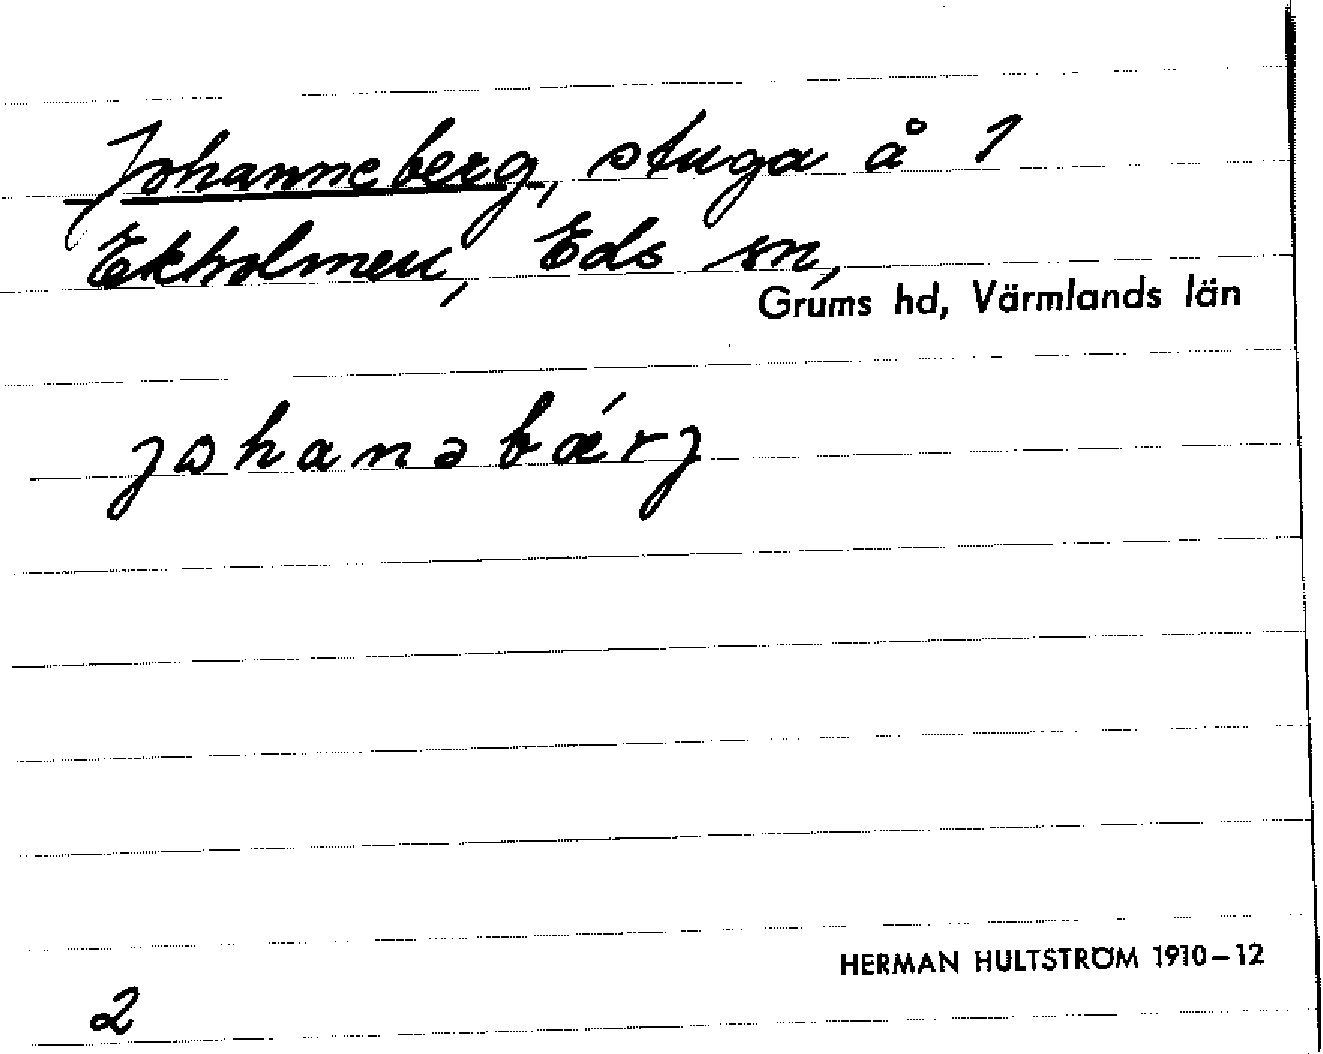 Johanneberg, stuga å 1
Ekholmen, Eds sn,
Grums hd, Värmlands län
johanəbǽrj
HERMAN HULTSTRÖM 1910–12
2